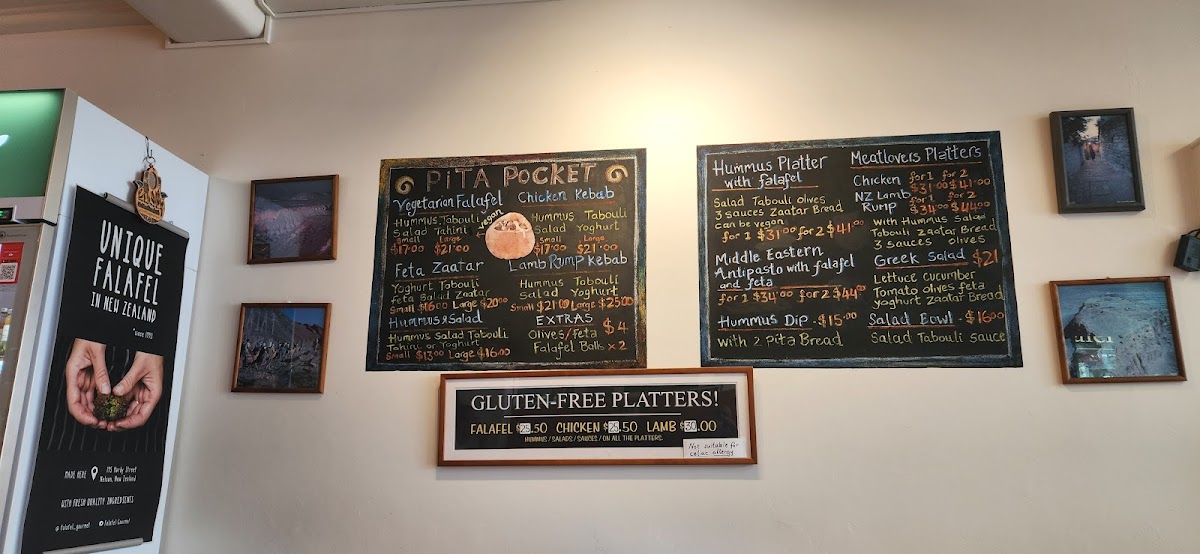 UNIQUE
FALAFEL
IN NEW ZEALAND
MADE HERE
195 Hardy Street
Nelson, New Zealand
WITH FRESH QUALITY INGREDIENTS
PITA POCKET
Vegetarian Falafel
Hummus Tabouli
Salad Tahini
Small Large
$17.00 $21.00
vegan
Feta Zaatar
Yoghurt Tabouli
feta Salad Zaatar
Small $16.00 Large $20.00
Hummus & Salad
Hummus Salad Tabouli
Tahini or Yoghurt
Small $13.00 Large $16.00
Chicken Kebab
Hummus Tabouli
Salad Yoghurt
Small Large
$17.00 $21.00
Lamb Rump kebab
Hummus Tabouli
Salad Yoghurt
Small $21.00 Large $25.00
EXTRAS
Olives/Feta
Falafel Balls x 2
$4
Hummus Platter
with falafel
Salad Tabouli olives
3 sauces Zaatar Bread
can be vegan
for 1 $31.00 for 2 $41.00
Middle Eastern
Antipasto with falafel
and feta
for 1 $34.00 for 2 $44.00
Hummus Dip - $15.00
with 2 Pita Bread
Meatlovers Platters
Chicken for 1 for 2
$31.00 $41.00
NZ Lamb for 1 for 2
Rump $34.00 $44.00
With Hummus Salad
Tabouli Zaatar Bread
3 sauces olives
Greek Salad $21
Lettuce cucumber
Tomato olives feta
yoghurt Zaatar Bread
Salad Bowl - $16.00
Salad Tabouli sauce
GLUTEN-FREE PLATTERS!
FALAFEL $25.50 CHICKEN $29.50 LAMB $30.00
HUMMUS / SALADS / SAUCES / ON ALL THE PLATTERS.
Not suitable for
celiac allergy